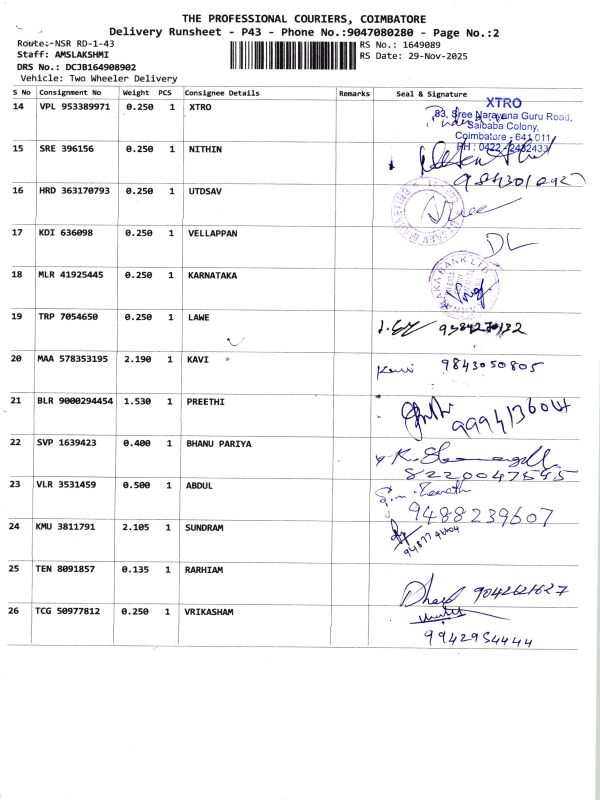 THE PROFESSIONAL COURIERS, COIMBATORE
Delivery Runsheet - P43 - Phone No.:9047080280 - Page No.:2
Route:-NSR RD-1-43
RS No.: 1649089
Staff: AMSLAKSHMI
RS Date: 29-Nov-2025
DRS No.: DCJB164908902
Vehicle: Two Wheeler Delivery
S No Consignment No Weight PCS Consignee Details Remarks Seal & Signature
14 VPL 953389971 0.250 1 XTRO
XTRO
83, Sree Narayana Guru Road,
Saibaba Colony,
Coimbatore - 641 011
PH : 0422 - 2432433
15 SRE 396156 0.250 1 NITHIN
16 HRD 363170793 0.250 1 UTDSAV
17 KDI 636098 0.250 1 VELLAPPAN
DL
18 MLR 41925445 0.250 1 KARNATAKA
BANK LTD
19 TRP 7054650 0.250 1 LAWE
20 MAA 578353195 2.190 1 KAVI
Kavi 9843050805
21 BLR 9000294454 1.530 1 PREETHI
9994136044
22 SVP 1639423 0.400 1 BHANU PARIYA
8220047545
23 VLR 3531459 0.500 1 ABDUL
9488239607
24 KMU 3811791 2.105 1 SUNDRAM
25 TEN 8091857 0.135 1 RARHIAM
9042621627
26 TCG 50977812 0.250 1 VRIKASHAM
9942954444